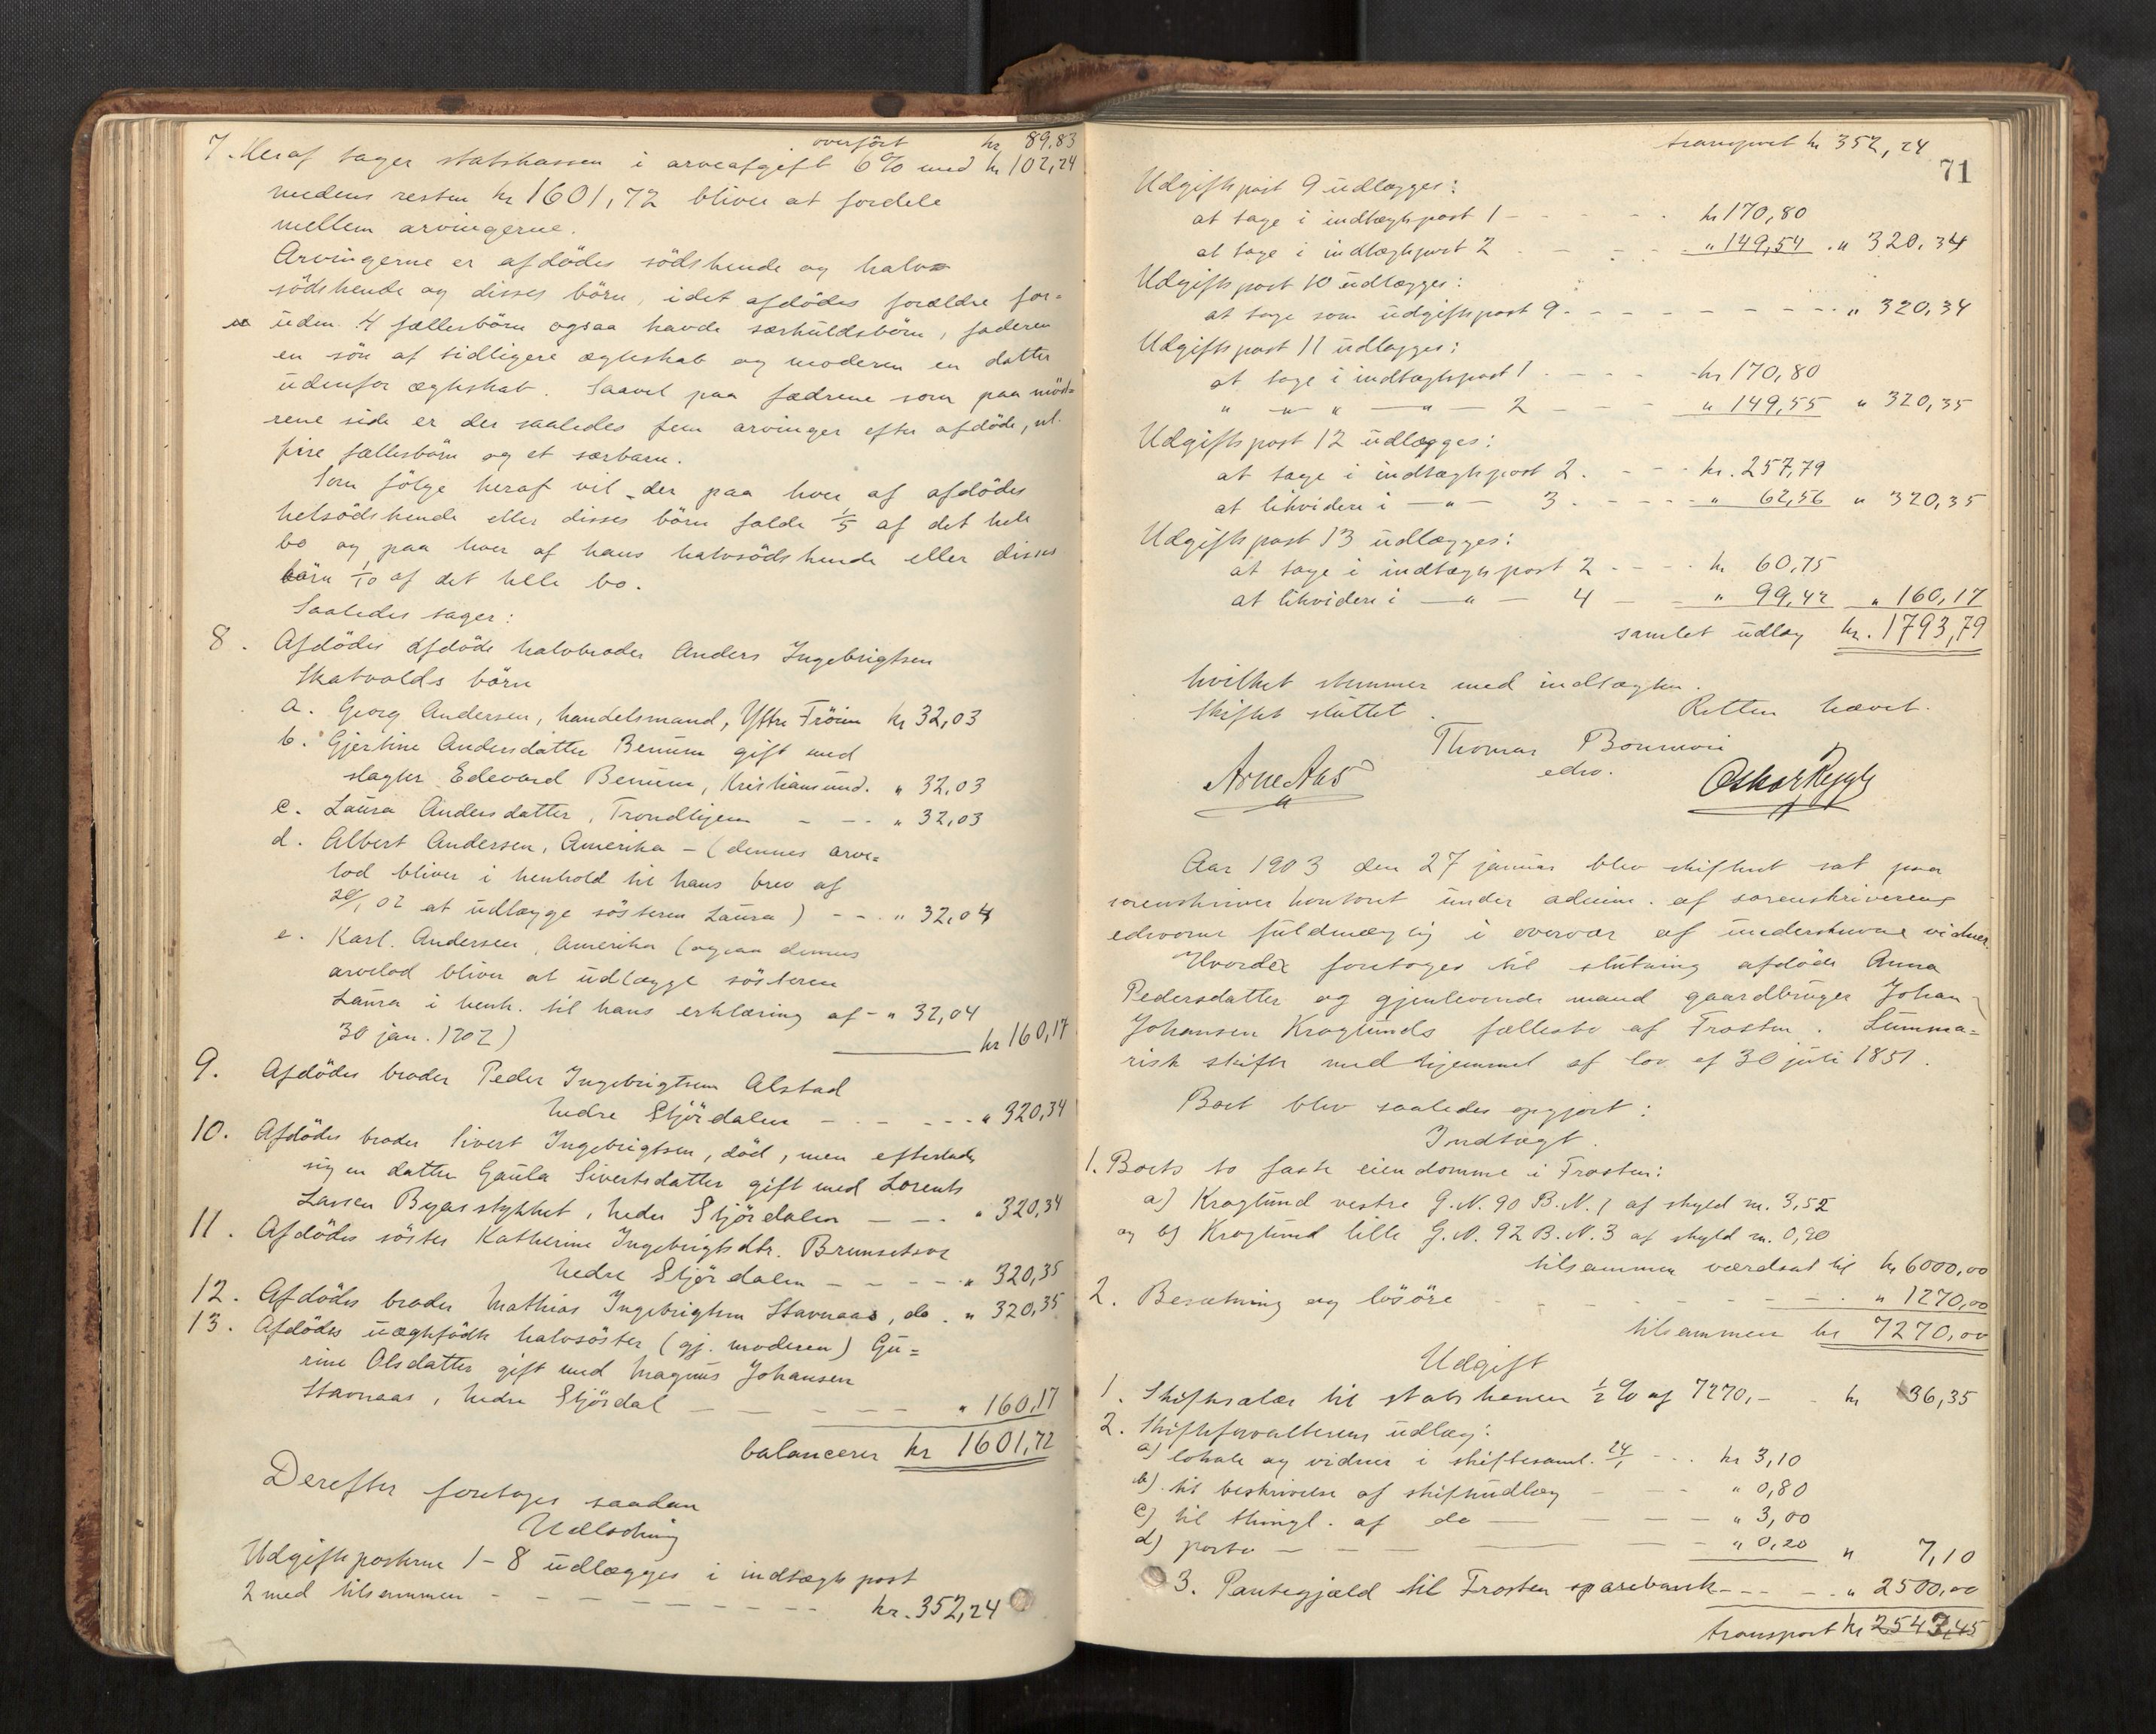 overført kr 89,83
7. Heraf tager statskassen i arveafgift 6% med kr 102,24
medens resten kr 1601,72 bliver at fordele
mellem arvingerne.
Arvingerne er afdödes södskende og halv=
södskende og disses börn, idet afdödes forældre for=
uden 4 fællesbörn ogsaa havde særkuldsbörn, faderen
en sön af tidligere ægteskab og moderen en datter
udenfor ægteskab. Saavel paa fædrene som paa möd=
rene side er der saaledes fem arvinger efter afdöde, nl.
fire fællesbörn og et særbarn.
Som fölge heraf vil der paa hver af afdödes
helsödskende eller disses börn falde 1/5 af det hele
bo og paa hver af hans halvsödskende eller disses
börn 1/10 af det hele bo.
Saaledes tager:
8. Afdödes afdöde halvbroder Anders Ingebrigtsen
Skatvolds börn
a. Georg Andersen, handelsmand, Yttre Fröien kr 32,03
b. Gjertine Andersdatter Benum gift med
slagter Edevard Benum, Kristiansund. " 32,03
c. Laura Andersdatter, Trondhjem - - - " 32,03
d. Albert Andersen, Amerika - (dennes arve=
lod bliver i henhold til hans brev af
20/1 02 at udlægge sösteren Laura) - - . " 32,04
e. Karl. Andersen, Amerika (ogsaa dennes
arvelod bliver at udlægge sösteren
Laura i henh. til hans erklæring af - " 32,04
30 jan. 1902) kr 160,17
9. Afdödes broder Peder Ingebrigtsen Alstad
Nedre Stjördalen - - - - - " 320,34
10. Afdödes broder Sivert Ingebrigtsen, död, men efterlader
sig en datter Gaula Sivertsdatter gift med Lorents
Larsen Byasstykket, Nedre Stjördalen - - - " 320,34
11. Afdödes söster Katherine Ingebrigtsdtr.
Nedre Stjördalen - - - - " 320,35
12. Afdödes broder Mathias Ingebrigtsen Stavnaas, do. " 320,35
13. Afdödes uægtefödte halvsöster (gj. moderen) Gu=
rine Olsdatter gift med Magnus Johansen
Stavnaas, Nedre Stjördal - - - - - " 160,17
balancerer kr 1601,72
Derefter foretoges saadan
Udlodning
Udgiftsposterne 1-8 udlægges i indtægtspost
2 med tilsammen - - - - - - - - - kr. 352,24
transport kr 352,24
71
Udgiftspost 9 udlægges:
at tage i indtægtspost 1 - - - - - kr 170,80
at tage i indtægtspost 2 - - - " 149,54 . " 320,34
Udgiftspost 10 udlægges:
at tage som udgiftspost 9 - - - - - - - - " 320,34
Udgiftspost 11 udlægges:
at tage i indtægtspost 1 - - - - kr 170,80
" - " - " - " - 2 - - - " 149,55 " 320,35
Udgiftspost 12 udlægges:
at tage i indtægtspost 2. - - - kr. 257,79
at likvidere i - " - 3 - - - - " 62,56 " 320,35
Udgiftspost 13 udlægges:
at tage i indtægtspost 2 - - - - kr 60,75
at likvidere i - " - 4 - - " 99,42 " 160,17
samlet udlæg kr. 1793,79
hvilket stemmer med indtægten.
Skiftet sluttet. Retten hævet.
Thomas
edsv.
Arne Aas Oskar
Aar 1903 den 27 januar blev skifteret sat paa
sorenskriverkontoret under admin. af sorenskriverens
edsvorne fuldmægtig i overvær af underskrevne vidner.
Hvorder foretoges til slutning afdöde Anna
Pedersdatter og gjenlevende mand gaardbruger Johan
Johansen Kroglunds fællesbo af Frosten. Summa=
risk skifte med hjemmel af lov af 30 juli 1851.
Boet blev saaledes opgjort:
Indtægt.
1. Boets to faste eiendomme i Frosten:
a) Kroglund vestre G.N. 90 B.N. 1 af skyld m. 3,52
og b) Kroglund lille G.N. 92 B.N. 3 af skyld m. 0,20
tilsammen værdsat til kr 6000,00
2. Besætning og lösöre - - - - - - - - " 1270,00
tilsammen kr 7270,00
Udgift
1. Skiftesalær til statskassen 1/2 % af 7270,- - kr 36,35
2. Skifteforvalterens udlæg:
a) lokale og vidner i skiftesaml. 24/1 - - . kr 3,10
b) til beskrivelse af skifteudlæg - - - " 0,80
c) til thingl. af do - - - - " 3,00
d) porto - - - - - - " 0,20 " 7,10
3. Pantegjæld til Frosten sparebank - - - - . " 2500,00
transport kr 2543,45